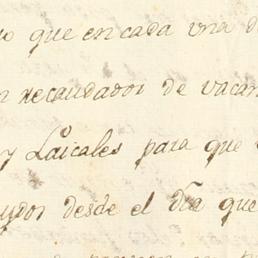 que en cada una d
recaudador de vacan
y Laicales para que
desde el dia que